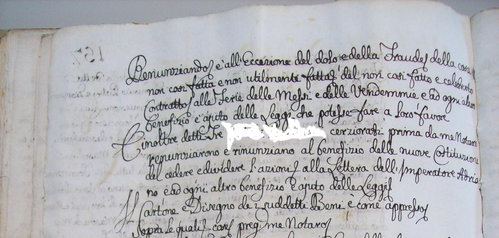 Renunziando è all'Eccezione del dolo e della fraude, della cosa
non così fatta e non utilmente fatta, del non così fatto e celebrato
Contratto alle Ferie delle Messi e delle Vendemmie, e ad ogni altro
benefizio e ajuto delle Leggi che potesse fare a loro favore
E inoltre detti Sre cerziorati prima da me Notaro
renunziarono e rinunziano al benefizio delle nuove costituzioni
del cedere e dividere l'azioni alla Lettera dell'Imperatore Adria
no e ad ogni altro benefizio e ajuto delle Leggi
Il Cartone e Disegno de suddetti Beni è come appresso
sopra le quali cose pregò me Notaro